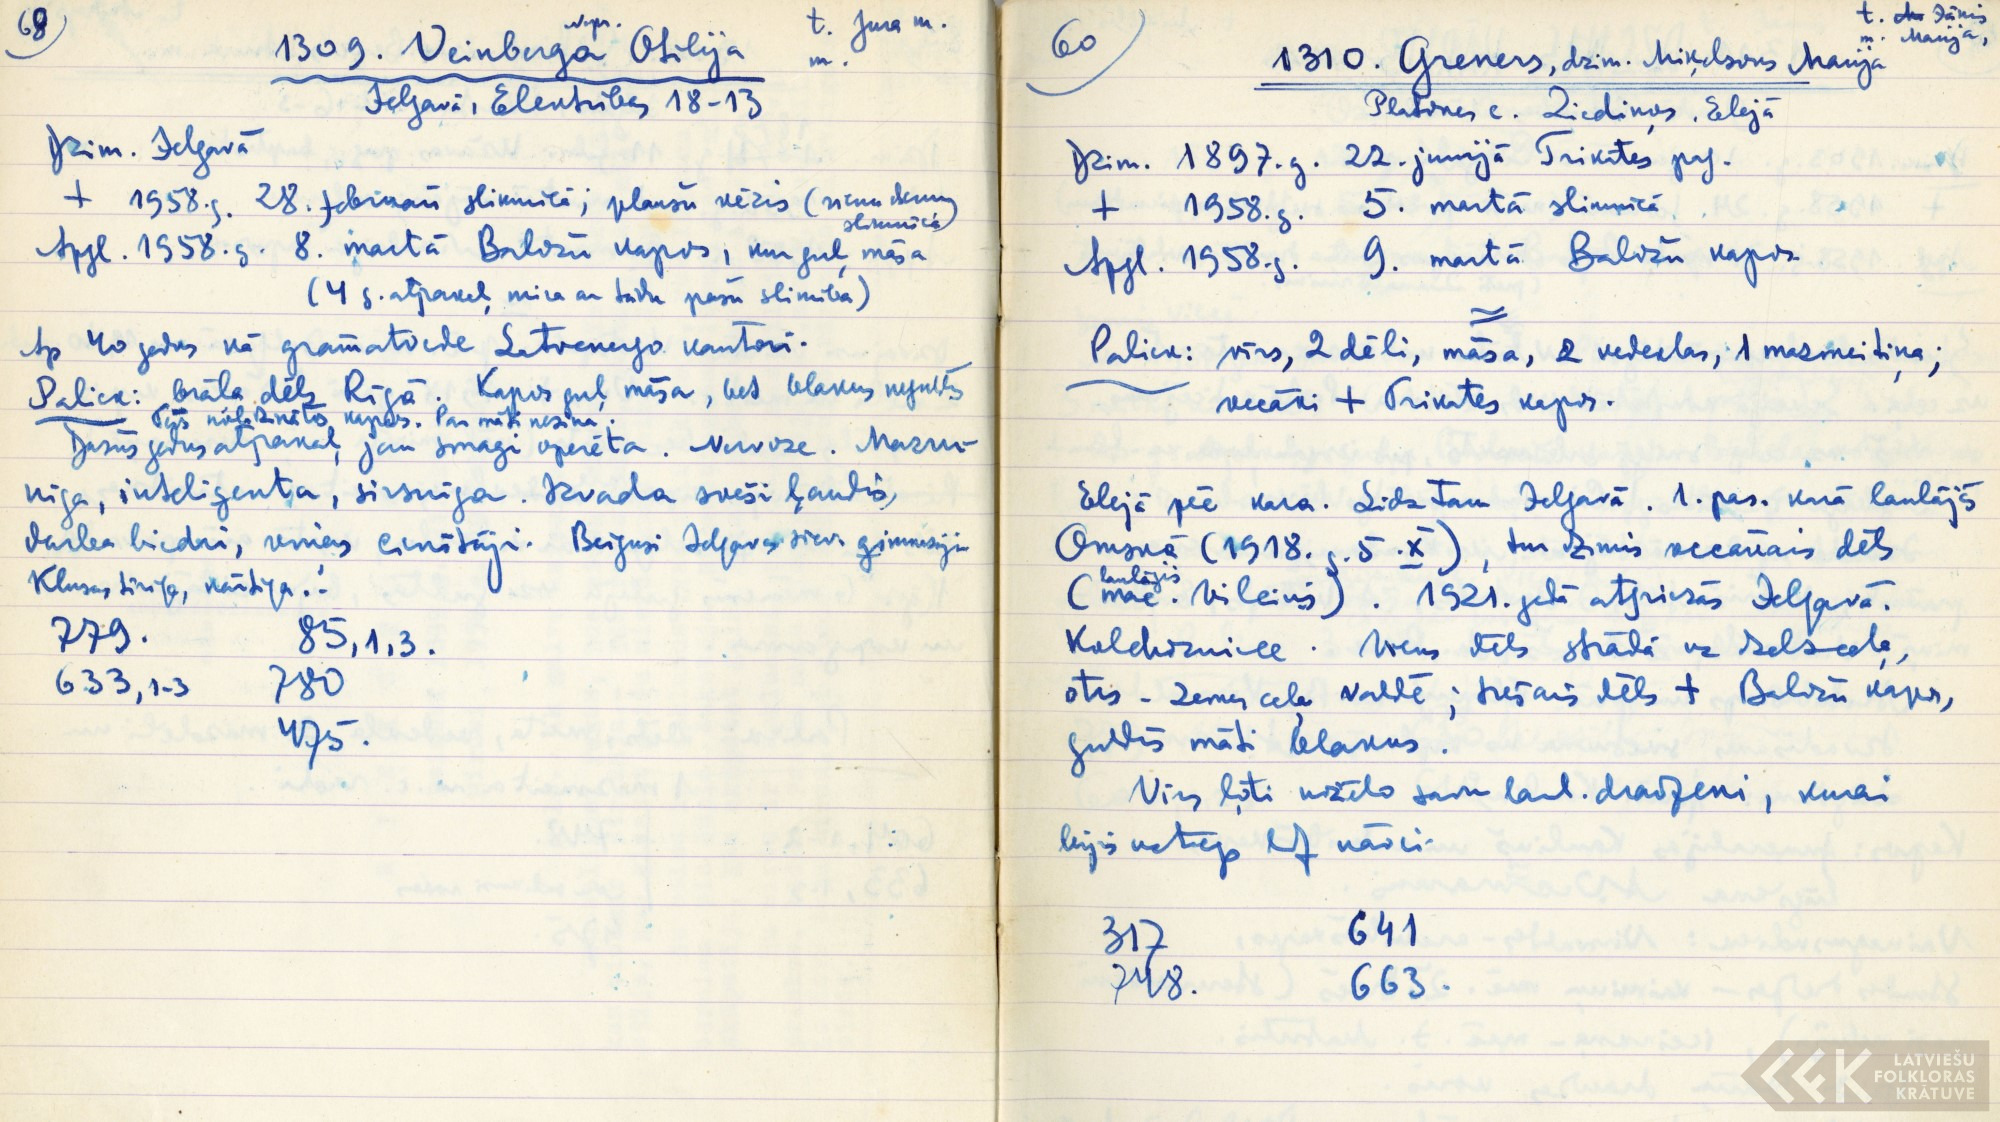 68
1309. Veinberga Otīlija
nepr.
t. Jura m.
m.
Jelgavā, Elektrības 18-13
Dzim. Jelgavā
+ 1958.g. 28. februārī slimnīcā; plaušu vēzis (vienu dienu slimnīcā)
Apgl. 1958.g. 8. martā Baložu kapos, kur guļ māsa
(4 g. atpakaļ mira ar tādu pašu slimību)
Ap 40 gadus kā grāmatvede Latvenergo kantorī.
Paliek: brāļa dēls Rīgā. Kapos guļ māsa, bet blakus
Tēvs kapos. Par māti nezina.
gadus atpakaļ jau smagi operēta. Nervoze. Mazru-
nīga, inteliģenta, sirsnīga. Izvada sveši ļaudis,
darba biedri, viņas cienītāji. Beigusi Jelgavas siev. ģimnāziju
Klusa, tīrīga, kārtīga.
779. 85,1,3.
633,1-3 780
475.
60
t. Jānis
m. Marija,
1310. Greners, dzim. Miķelsons Marija
Platones c. Ziediņos, Elejā
Dzim. 1897.g. 22. jūnijā Trikātes prg.
+ 1958.g. 5. martā slimnīcā
Apgl. 1958.g. 9. martā Baložu kapos
Paliek: vīrs, 2 dēli, māsa, 2 vedeklas, 1 mazmeitiņa;
vecāki + Trikātes kapos.
Elejā pēc kara. Līdz tam Jelgavā. 1. pas. karā laulājās
Omskā (1918.g. 5 X), tur dzimis vecākais dēls
(laulājis māc. Vilciņš). 1921. gadā atgriezās Jelgavā.
Kolchozniece. Viens dēls strādā uz dzelzceļa,
otrs - zemes ceļu valdē; trešais dēls + Baložu kapos,
guldīs māti blakus.
Vīrs ļoti nožēlo savu laul. draudzeni, kurai
bijis nāvei.
317 641
748. 663.
LATVIEŠU
FOLKLORAS
KRĀTUVE